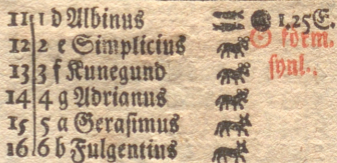 11 1 d Albinus 1.25 E.
12 2 e Simplicius ☉ korm.
13 3 f Kunegund synl.,
14 4 g Adrianus
15 5 a Gerasimus
16 6 b Fulgentius